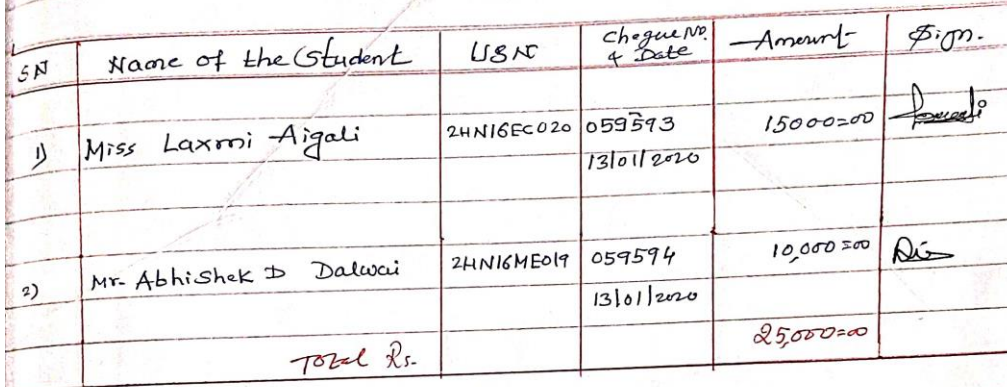 SN Name of the Student USN Cheque No. & Date Amount Sign.
1) Miss Laxmi Aigali 2HN16EC020 059593 15000=00
13/01/2020
2) Mr. Abhishek D Dalwai 2HN16ME019 059594 10,000=00
13/01/2020
Total Rs. 25,000=00